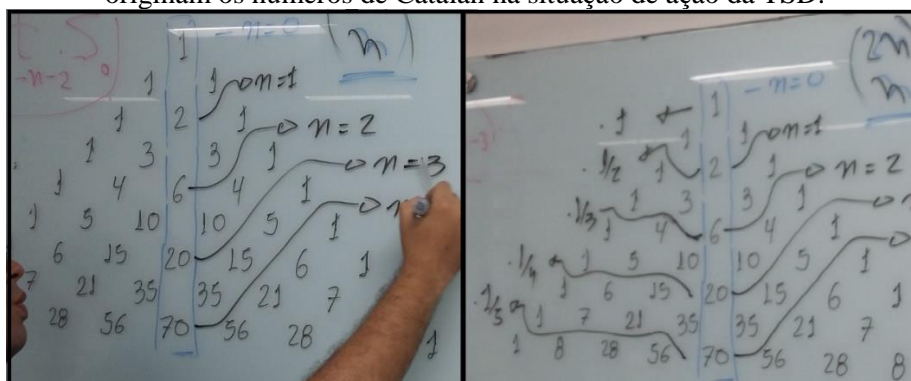 originam os números de Catalan na situação de ação da TSD.
1 - n=0
1 1 n=1
1 2 1 n=2
1 3 3 1 n=3
1 4 6 4 1
1 5 10 10 5 1
6 15 20 15 6 1
7 21 35 35 21 7
28 56 70 56 28 1
-n-2
(n)
1 - n=0 (2n n)
.1 1 1 n=1
.1/2 1 2 1 n=2
.1/3 1 3 3 1
.1/4 1 4 6 4 1
.1/5 1 5 10 10 5 1
1 6 15 20 15 6 1
1 7 21 35 35 21 7
1 8 28 56 70 56 28 8